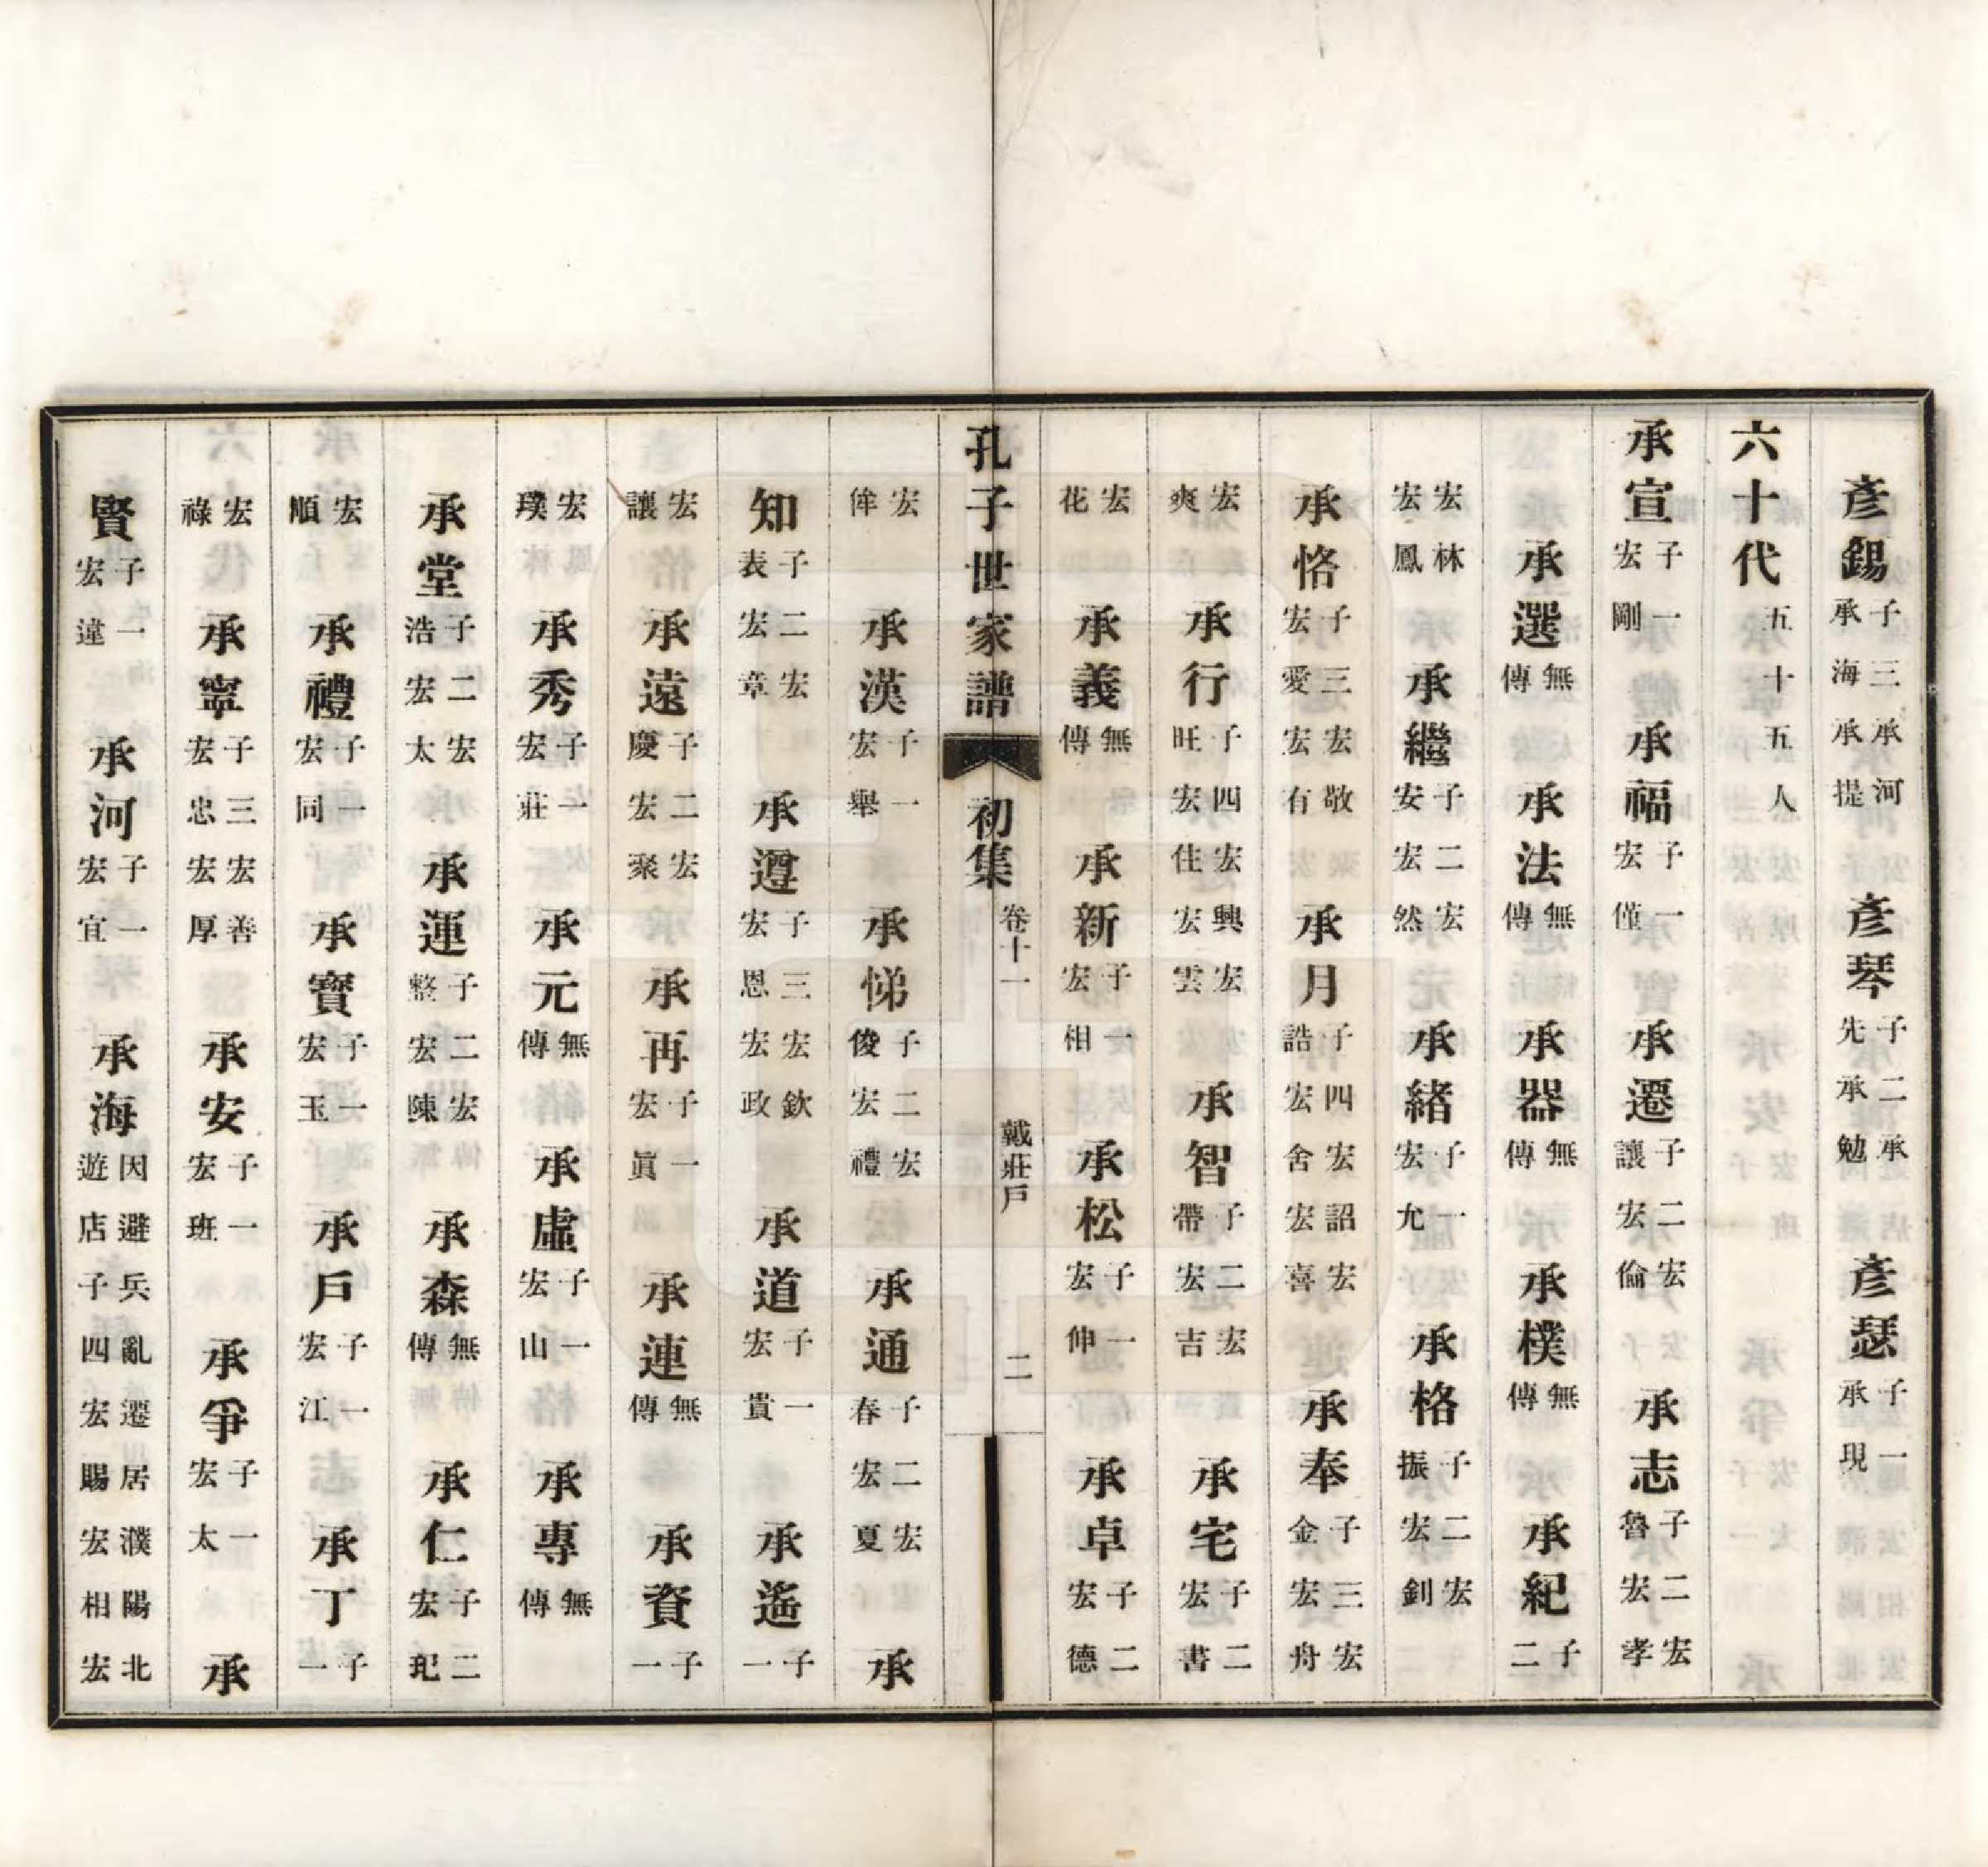 彥錫子三承河承海承提　彥琴子二承勉先承　彥瑟子一承現
六十代五十五人
承宣子一宏剛　承福子一宏僅　承遷子二宏倫讓宏　承志子二宏孝魯宏
承選無傳　承法無傳　承器無傳　承樸無傳　承紀子二
宏林宏鳳　承繼子二宏然安宏　承緒子一宏允　承格子二宏釗振宏
承恪子三宏敬宏愛宏有　承月子四宏詔宏喜誥宏舍宏　承奉子三宏舟金宏
宏爽　承行子四宏興宏雲旺宏住宏　承智子二宏吉帶宏　承宅子二宏書
宏花　承義無傳　承新子一宏相　承松子一宏伸　承卓子二宏德
孔子世家譜　初集　卷十一　戴莊戶　二
宏侔　承漢子一宏舉　承悌子二宏禮俊宏　承通子二宏夏春宏　承
知子二宏章表宏　承遵子三宏欽宏政恩宏　承道子一宏貴　承遙子一
宏讓　承遠子二宏聚慶宏　承再子一宏眞　承連無傳　承資子一
宏璞　承秀子一宏莊　承元無傳　承虛子一宏山　承專無傳
承堂子二宏太浩宏　承運子二宏陳整宏　承森無傳　承仁子二宏玘
宏順　承禮子一宏同　承寶子一宏玉　承戶子一宏江　承丁子一
宏祿　承寧子三宏善宏忠宏厚　承安子一宏班　承爭子一宏太　承
賢子一宏違　承河子一宏宜　承海因避兵亂遷居濮陽北遊店子四宏賜宏相宏